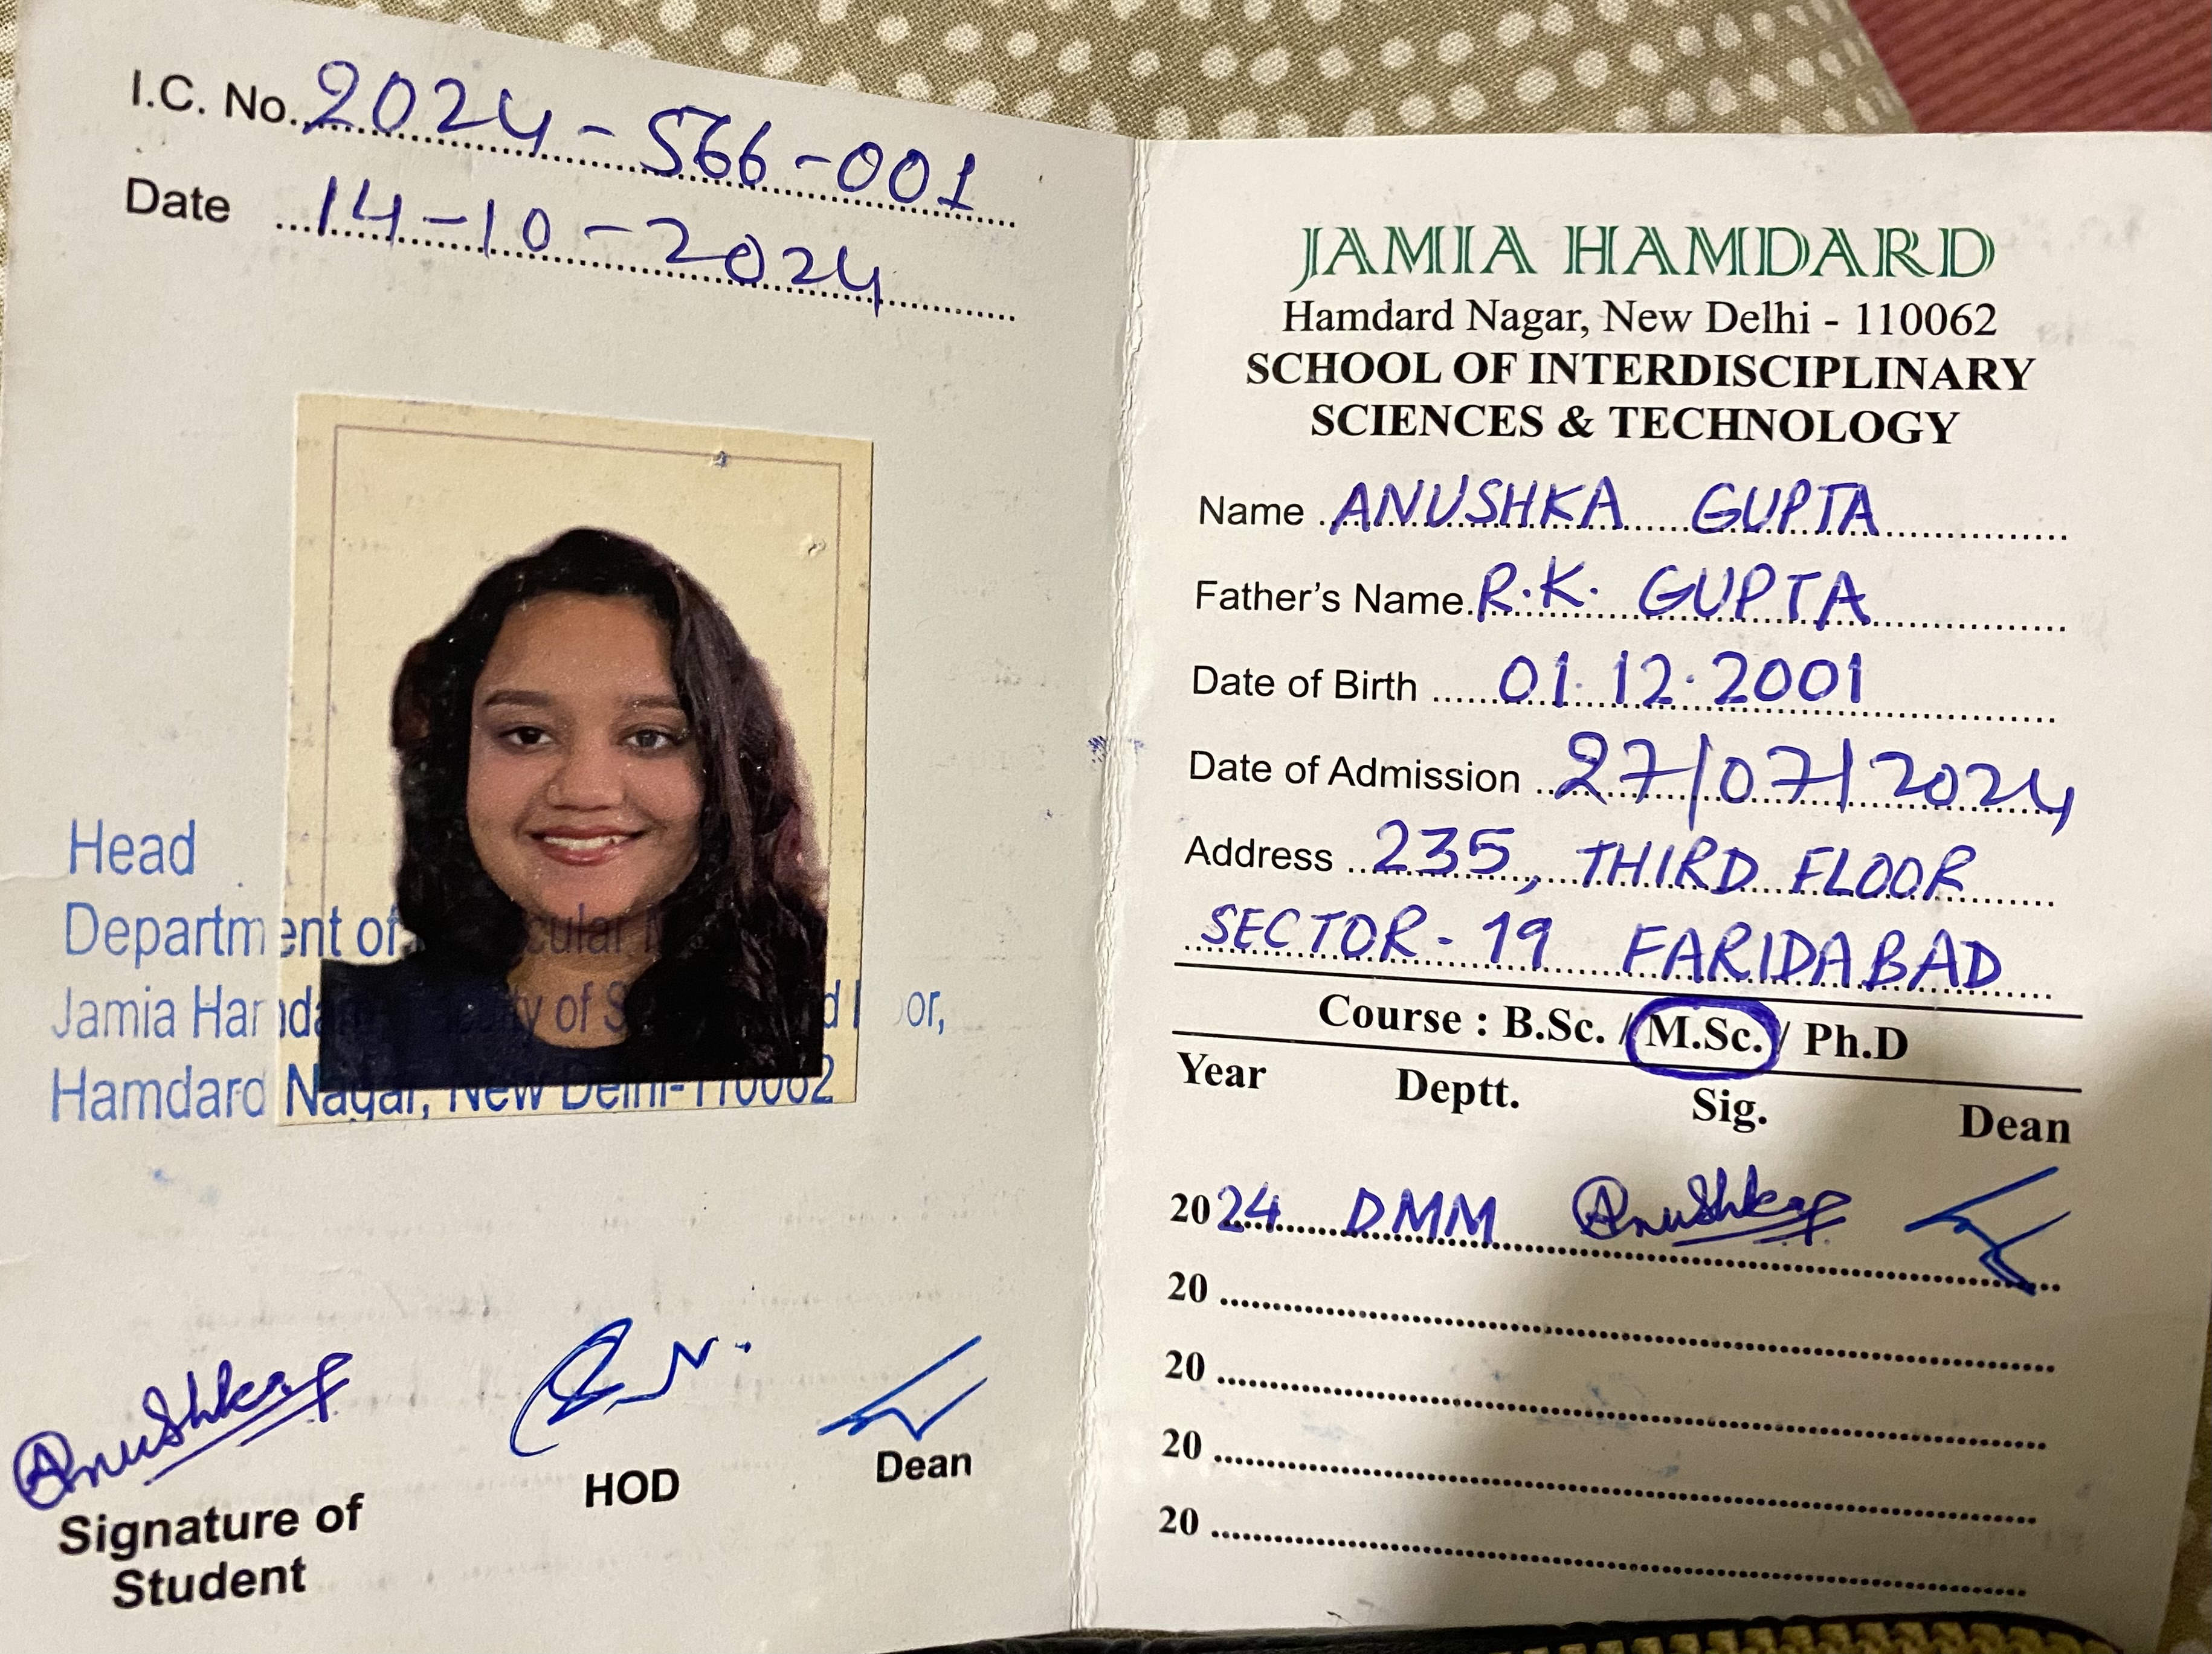 I.C. No. 2024-566-001
Date 14-10-2024
Head
Department of cular
Jamia Hamdar ty of S d or,
Hamdard Nagar, New Delhi-110062
Anushka
Signature of
Student
HOD
Dean
JAMIA HAMDARD
Hamdard Nagar, New Delhi - 110062
SCHOOL OF INTERDISCIPLINARY
SCIENCES & TECHNOLOGY
Name ANUSHKA GUPTA
Father's Name R.K. GUPTA
Date of Birth 01.12.2001
Date of Admission 27/07/2024
Address 235, THIRD FLOOR
SECTOR-19 FARIDABAD
Course : B.Sc. / M.Sc. / Ph.D
Year Deptt. Sig. Dean
2024 DMM Anushka
20
20
20
20